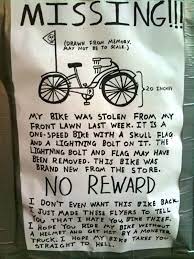 MISSING!!!
(DRAWN FROM MEMORY.
MAY NOT BE TO SCALE.)
20 INCHES
MY BIKE WAS STOLEN FROM MY
FRONT LAWN LAST WEEK. IT IS A
ONE-SPEED BIKE WITH A SKULL FLAG
AND A LIGHTNING BOLT ON IT. THE
LIGHTNING BOLT AND FLAG MAY HAVE
BEEN REMOVED. THIS BIKE WAS
BRAND NEW FROM THE STORE.
NO REWARD
I DON'T EVEN WANT THIS BIKE BACK.
I JUST MADE THESE FLYERS TO TELL
YOU THAT I HATE YOU BIKE THIEF.
I HOPE YOU RIDE MY BIKE WITHOUT
A HELMET AND GET HIT BY A MONSTER
TRUCK. I HOPE MY BIKE TAKES YOU
STRAIGHT TO HELL.